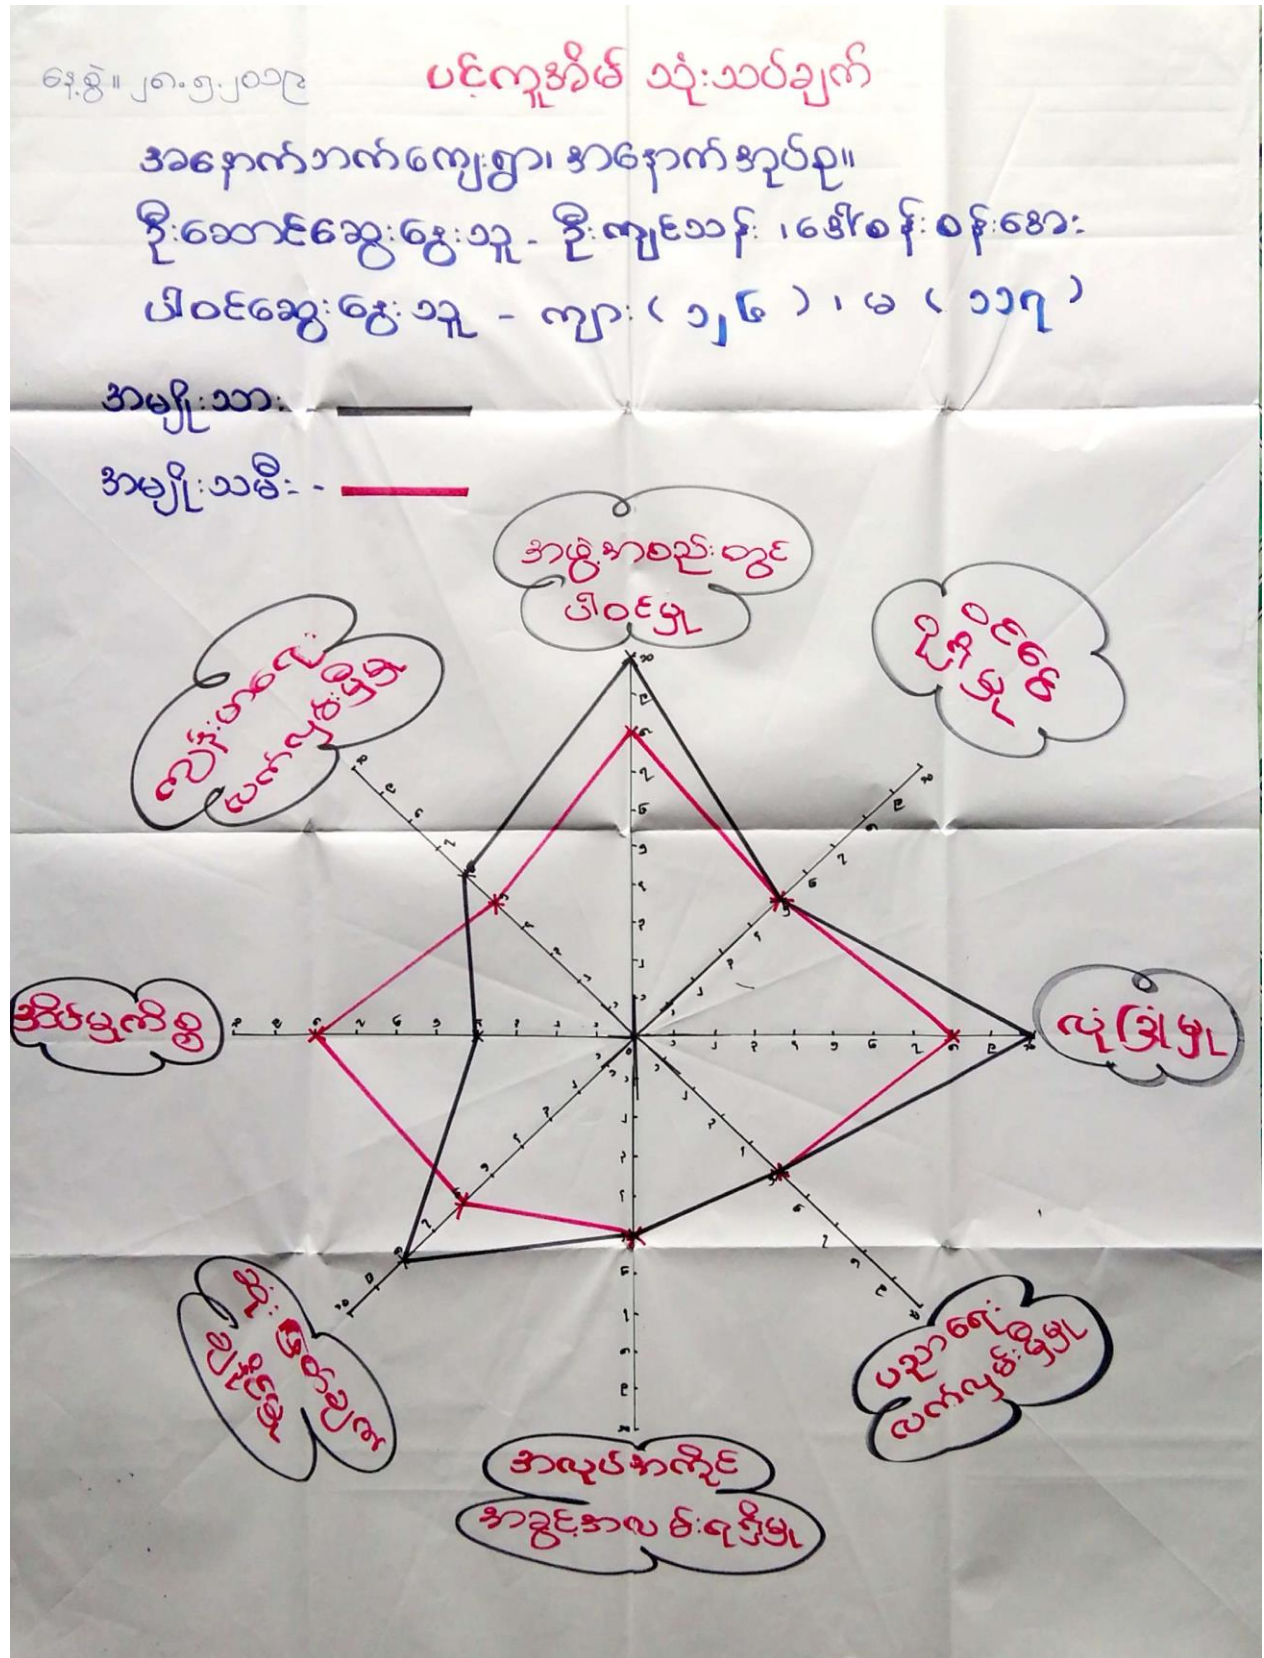 နေ့စွဲ။ ၂၈.၅.၂၀၁၉
ပင့်ကူအိမ် သုံးသပ်ချက်
အနောက်ဘက်ကျေးရွာ၊ အနောက်အုပ်စု။
ဦးဆောင်ဆွေးနွေးသူ - ဦးကျင်သန်း ၊ဒေါ်စန်းစန်းအေး
ပါဝင်ဆွေးနွေးသူ - ကျား ( ၁၂၆ ) ၊ မ ( ၁၁၇ )
အမျိုးသား -
အမျိုးသမီး -
အဖွဲ့အစည်းတွင်
ပါဝင်မှု
ဝင်ငွေ
ရရှိမှု
လုံခြုံမှု
ပညာရေး
လက်လှမ်းမှီမှု
အလုပ်အကိုင်
အခွင့်အလမ်းရရှိမှု
ဆုံးဖြတ်ချက်
ချနိုင်မှု
အိမ်မှုကိစ္စ
ကျန်းမာရေး
လက်လှမ်းမှီမှု